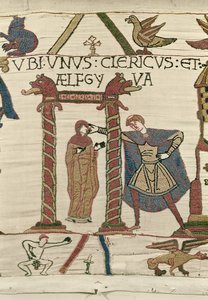 VBI:VNVS:CLERICVS:ET:
ÆLFGYVA